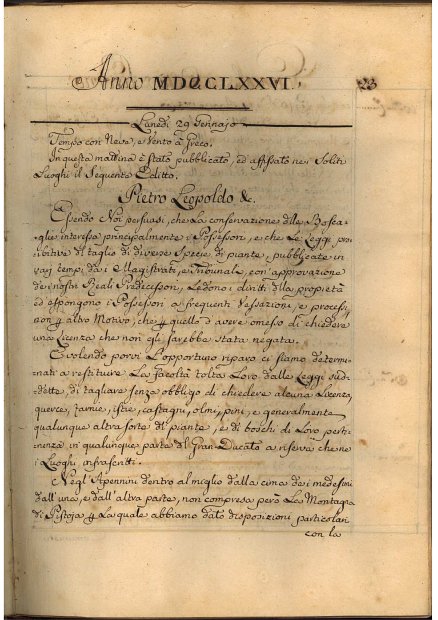 Anno MDCCLXXVI.
23
Lunedì 29 Gennajo
Tempo con Neve, e Vento a Greco.
In questa mattina è stato pubblicato, ed affissato nei Soliti
Luoghi il Seguente Editto.
Pietro Leopoldo &c.
Essendo Noi persuasi, che La conservazione delle Bosca-
glie interessa principalmente i Possessori, e che Le Leggi pro-
ibitive di taglio di diverse Specie di piante, pubblicate in
varj tempi da i Magistrati, e Tribunali, con approvazione
dei nostri Reali Predecessori, Ledono i diritti della proprietà
ed espongono i Possessori a frequenti Vessazioni, e processi,
non altro Motivo, che quello d'avere omesso di chiedere
una Licenza che non gli sarebbe stata negata.
E volendo porvi L'opportuno riparo ci siamo determi-
nati a restituire La facoltà tolta Loro dalle Leggi sud-
dette, di tagliare senza obbligo di chiedere alcuna Licenza,
querce, farnie, istie, castagni, olmi, pini, e generalmente
qualunque altra sorte di piante, e di boschi di Loro perti-
nenza in qualunque parte del Gran Ducato a riserva che ne
i Luoghi infrascritti.
Negl'Apennini dentro al miglio dalla cima dei medesimi
dall'una, e dall'altra parte, non compresa però La Montagna
di Pistoja La quale abbiamo dato disposizioni particolari
con la